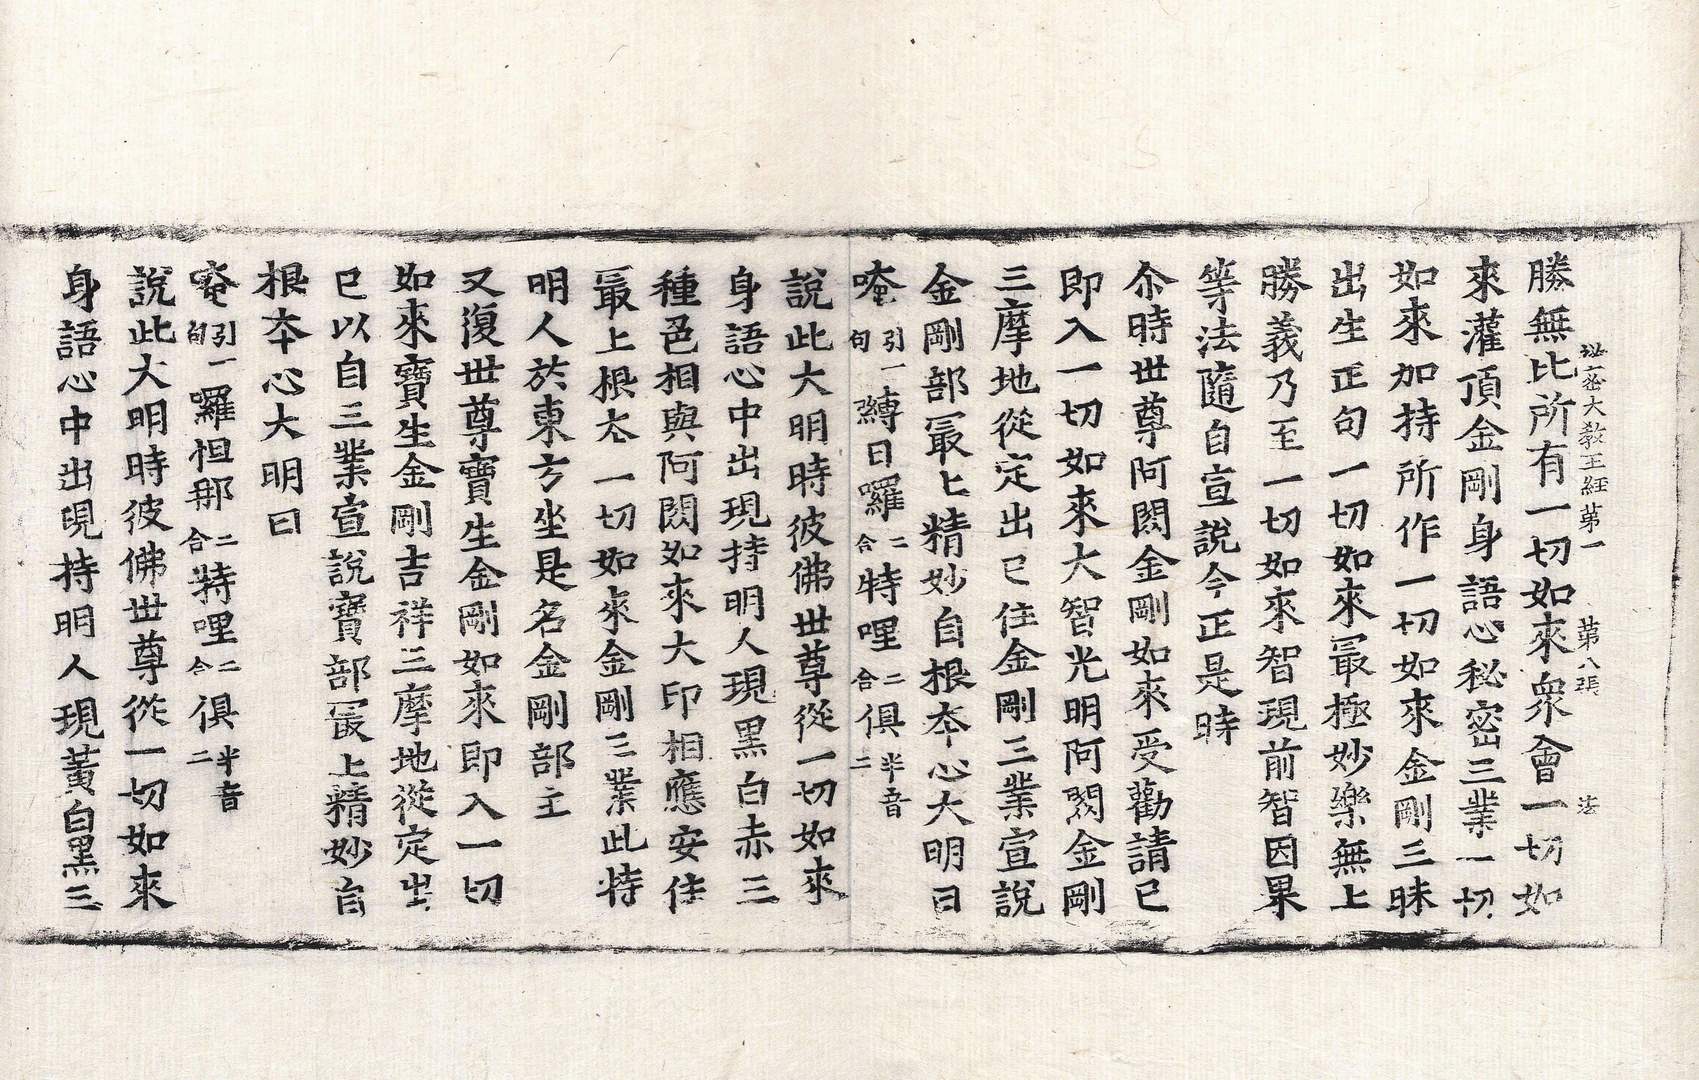 祕密大教王經第一　第八張　染
勝無比所有一切如來眾會一切如
來灌頂金剛身語心秘密三業一切
如來加持所作一切如來金剛三昧
出生正句一切如來冣極妙樂無上
勝義乃至一切如來智現前智因果
等法隨自宣說今正是時
尒時世尊阿閦金剛如來受勸請已
即入一切如來大智光明阿閦金剛
三摩地從定出已住金剛三業宣說
金剛部冣上精妙自根本心大明曰
唵引一句縛日囉二合特哩二合俱半音二
說此大明時彼佛世尊從一切如來
身語心中出現持明人現黑白赤三
種色相與阿閦如來大印相應安住
冣上根本一切如來金剛三業此持
明人於東方坐是名金剛部主
又復世尊寶生金剛如來即入一切
如來寶生金剛吉祥三摩地從定出
已以自三業宣說寶部冣上精妙自
根本心大明曰
唵引一句囉怛那二合特哩二合俱半音二
說此大明時彼佛世尊從一切如來
身語心中出現持明人現黃白黑三